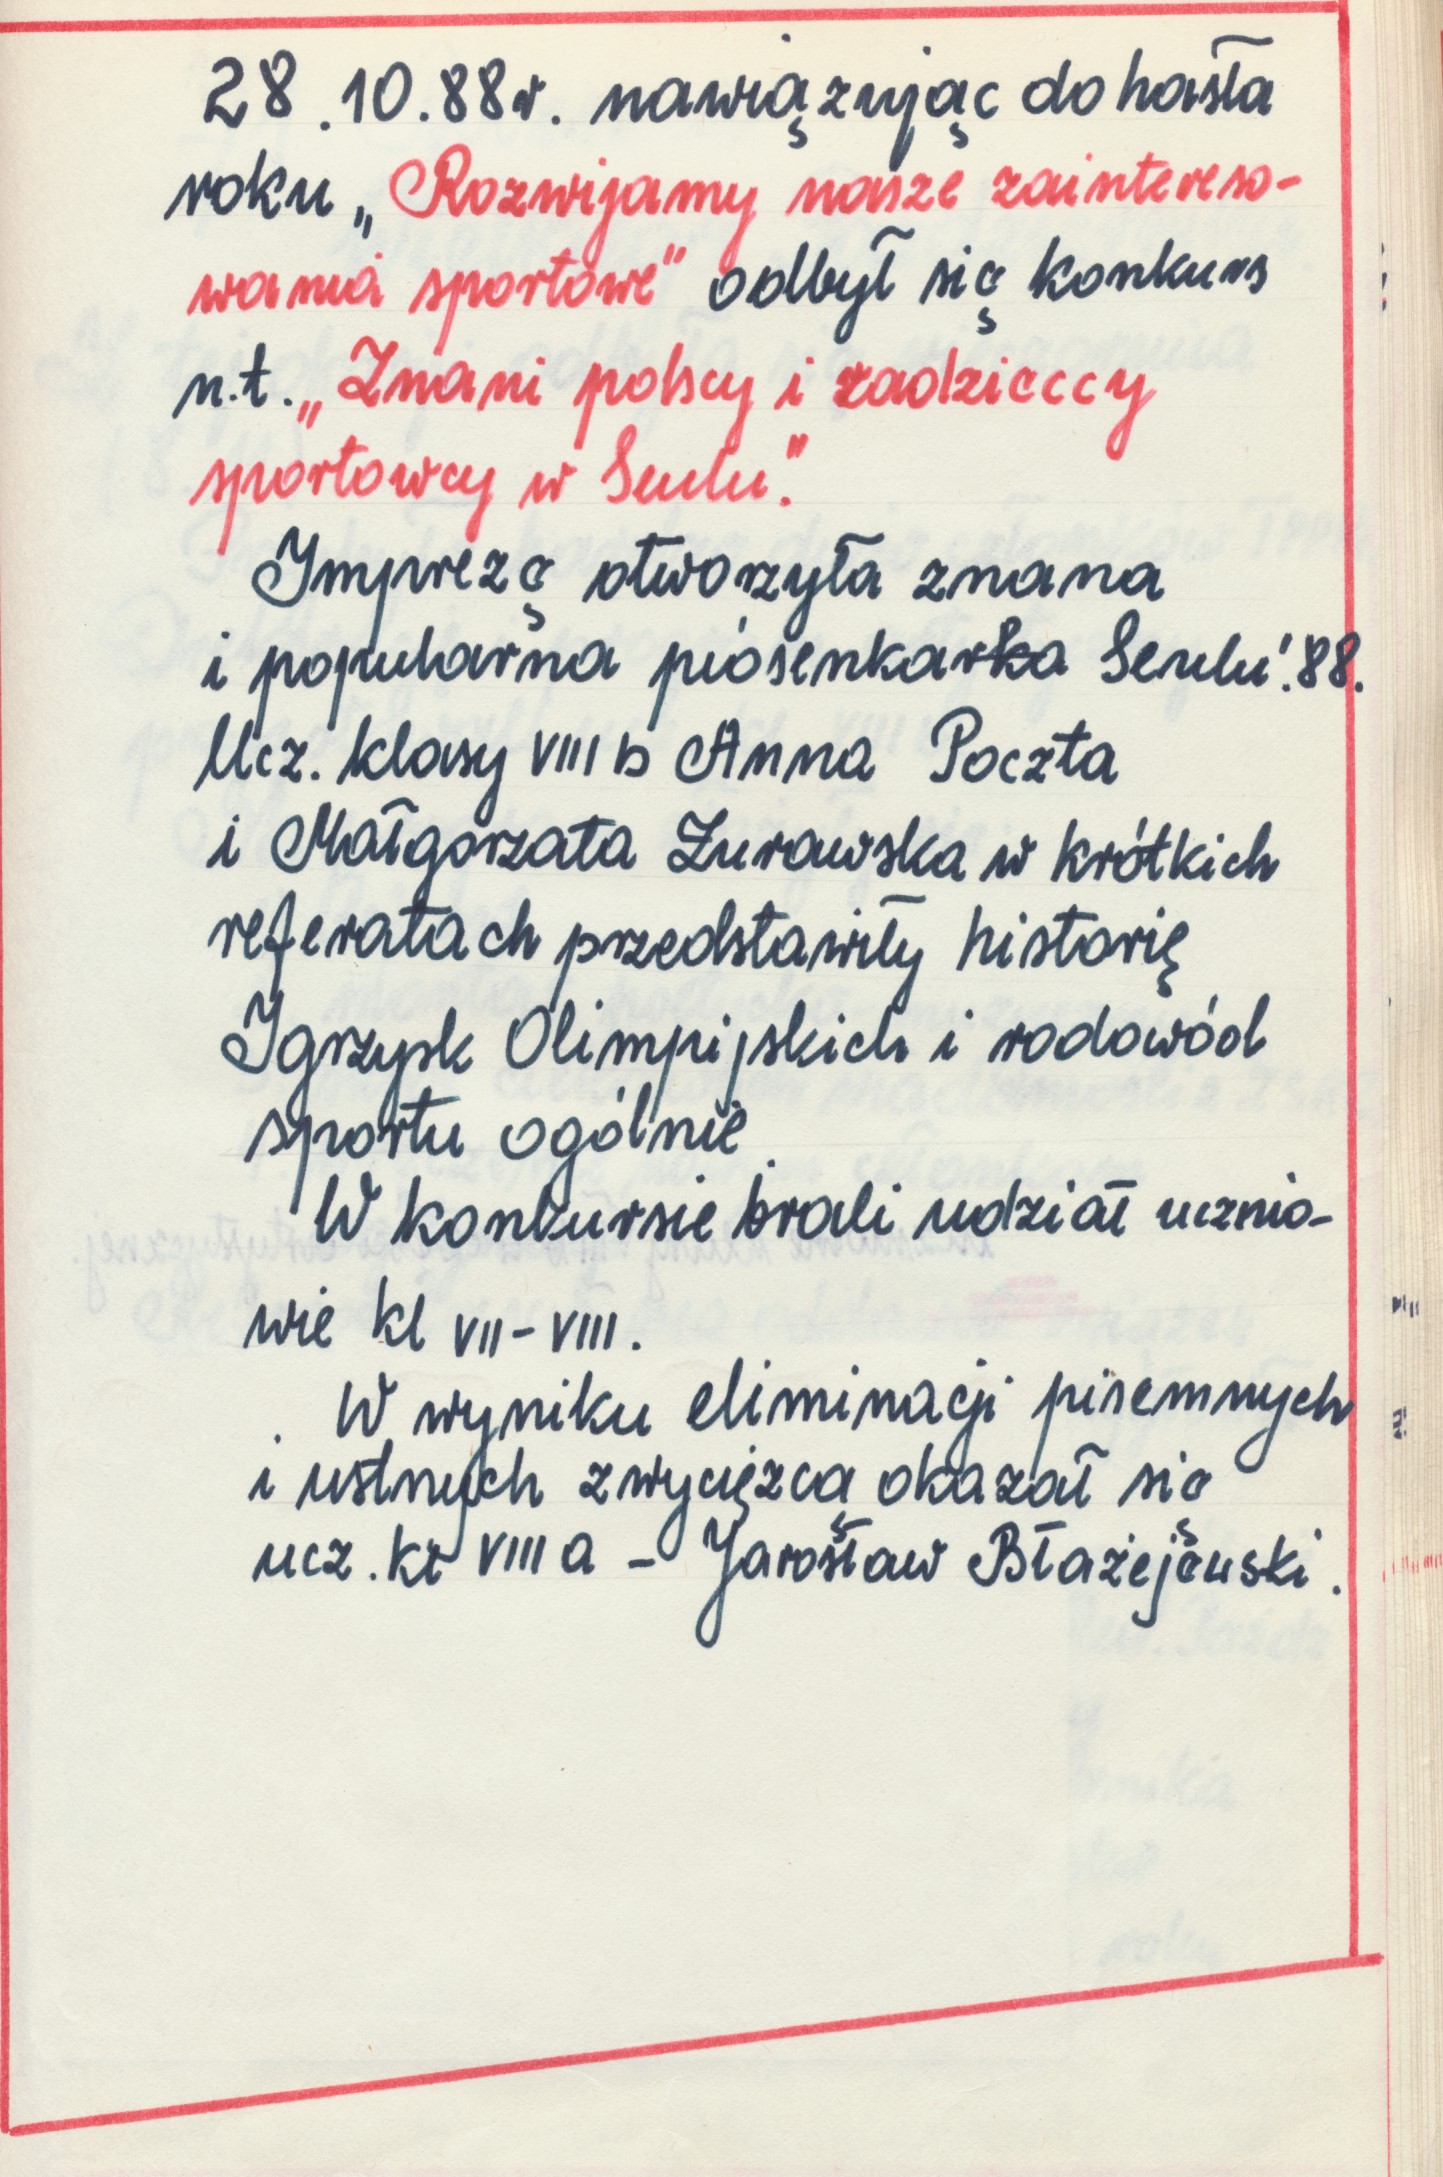 28.10.88r. nawiązując do hasła
roku „Rozwijamy nasze zaintereso-
wania sportowe" odbył się konkurs
n.t. „Znani polscy i radzieccy
sportowcy w Seulu."
Imprezę otworzyła znana
i popularna piosenkarka Seulu'.88.
Ucz. klasy VIII b Anna Poczta
i Małgorzata Żurawska w krótkich
referatach przedstawiły historię
Igrzysk Olimpijskich i rodowód
sportu ogólnie.
W konkursie brali udział ucznio-
wie kl VII-VIII.
W wyniku eliminacji pisemnych
i ustnych zwycięzcą okazał się
ucz. kl VIII a - Jarosław Błażejewski.